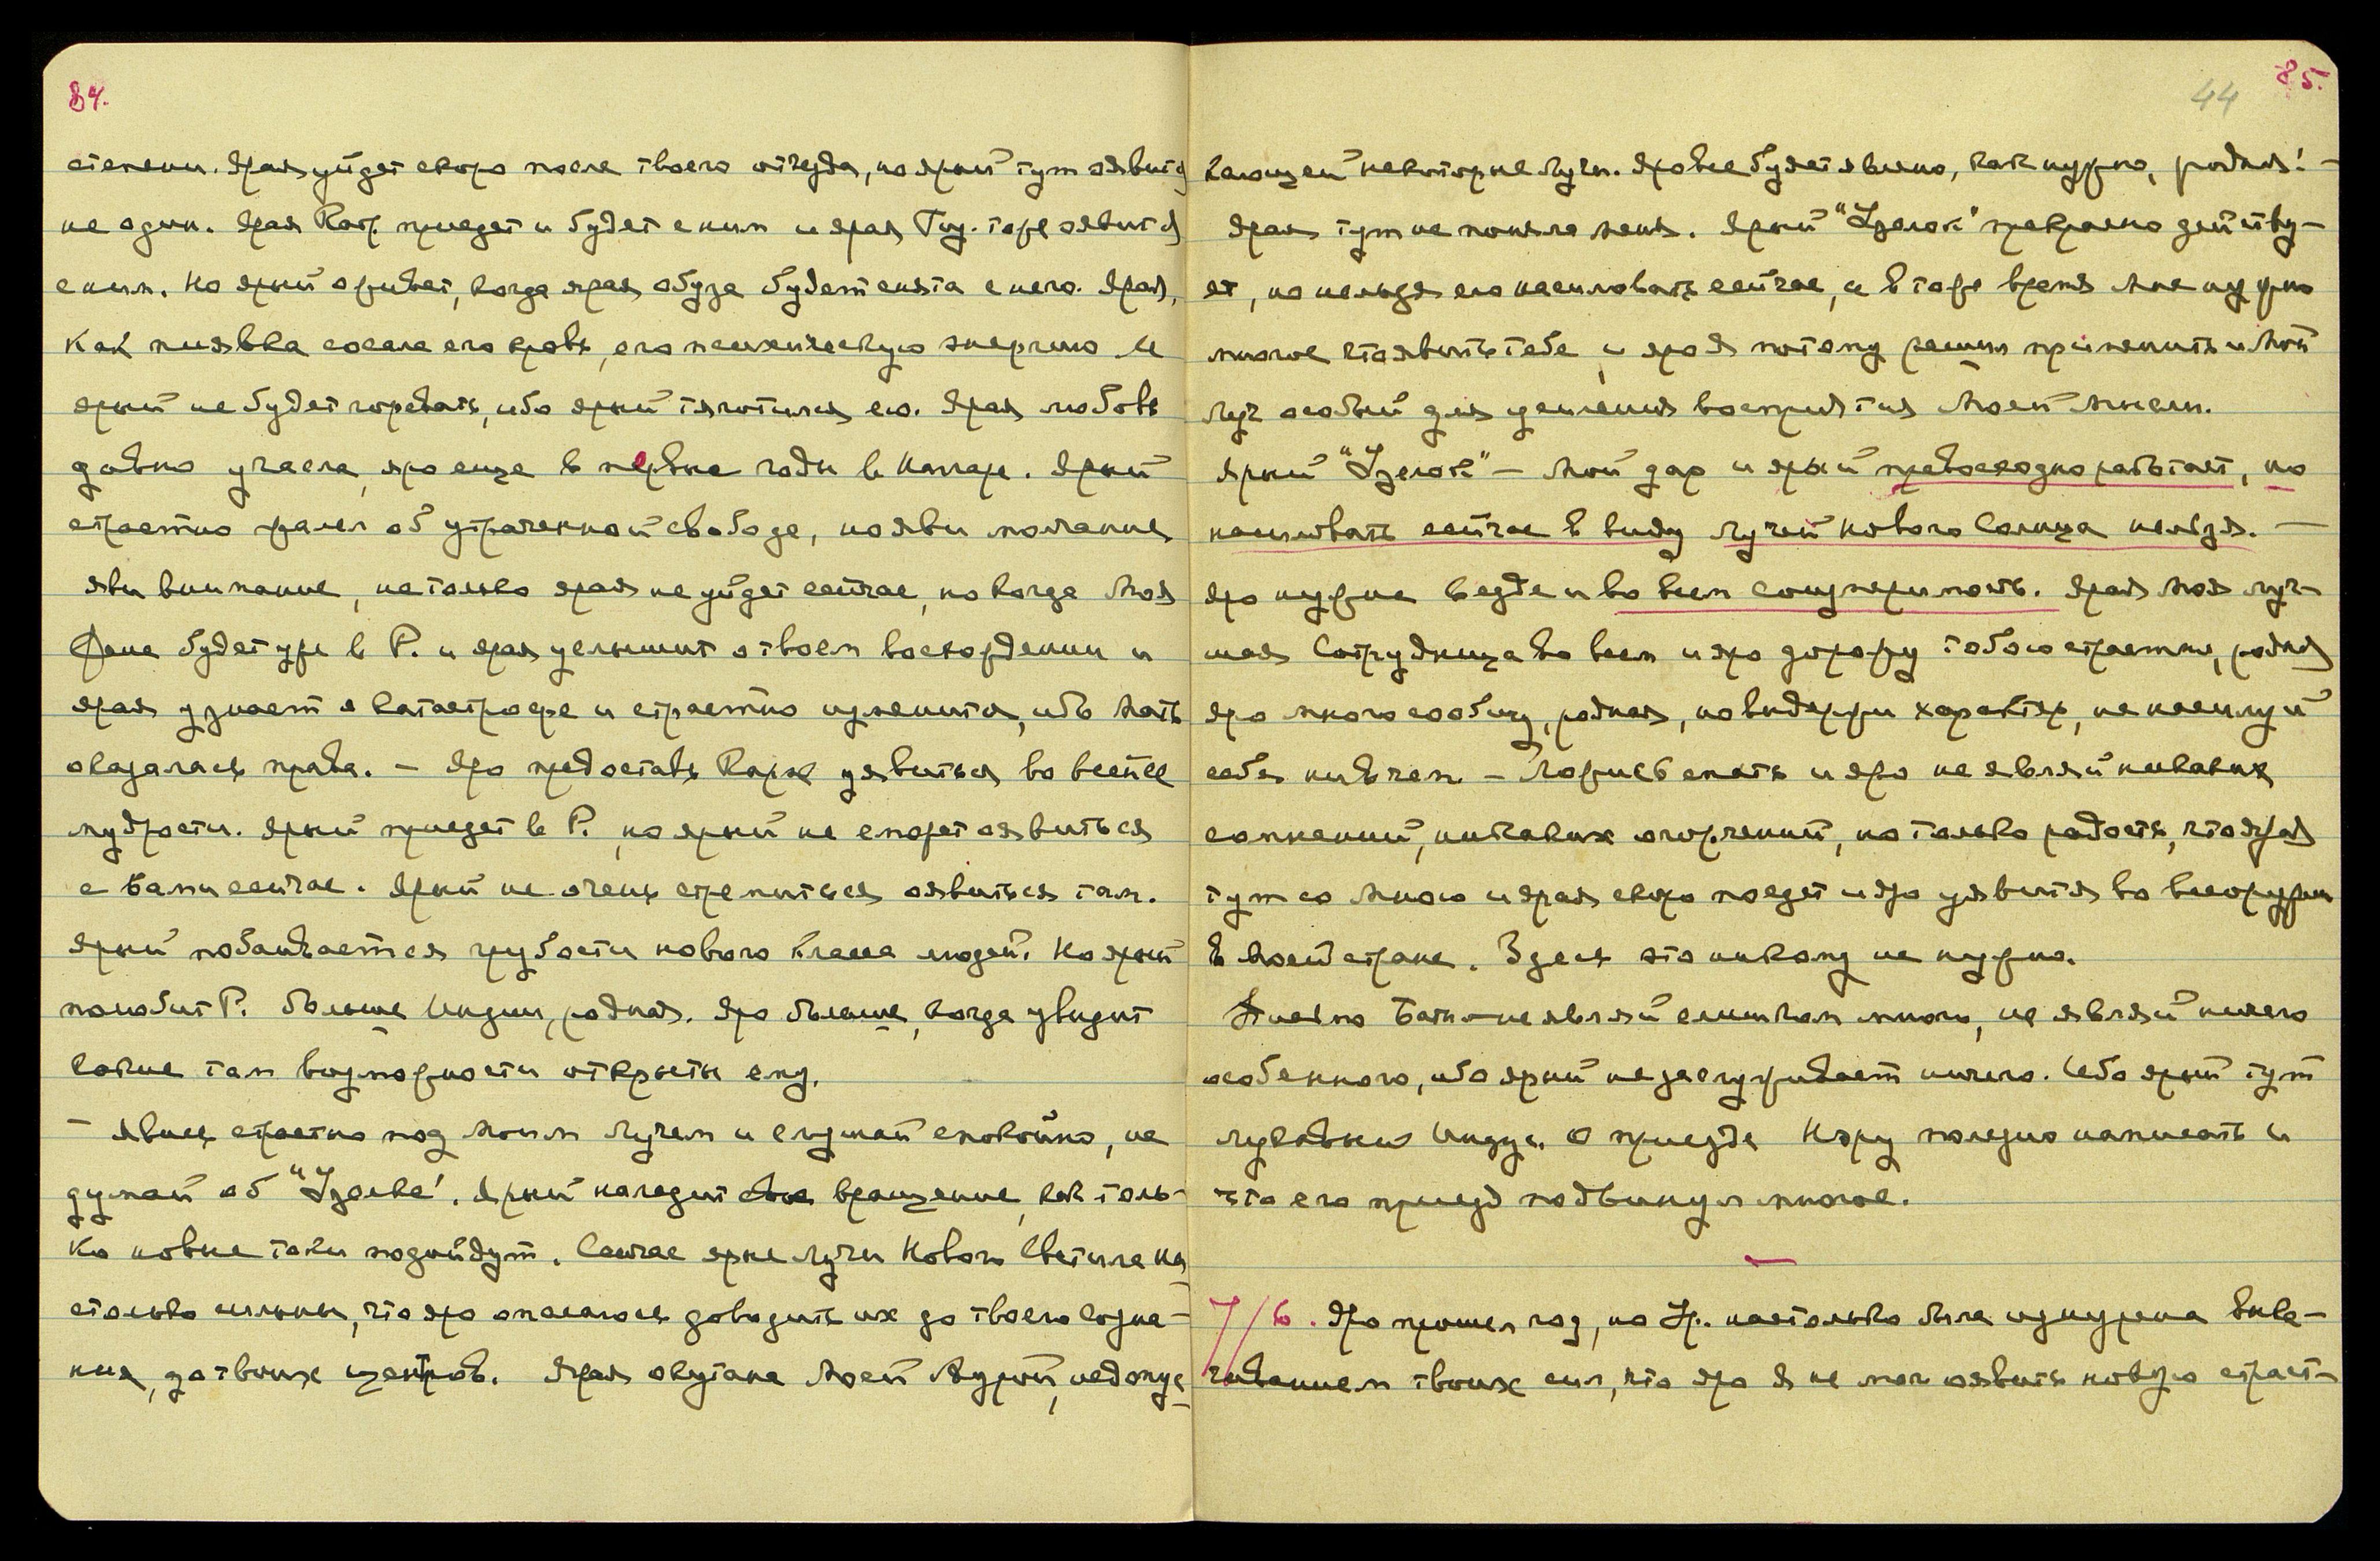 84.
степени. Ярая уйдет скоро после твоего отъезда, но ярый тут оявится
не один. Ярая Катр. приедет и будет с ним и ярая Гиг. тоже оявится
с ним. Но ярый оживет, когда ярая обуза будет снята с него. Ярая,
как пиявка сосала его кровь, его психическую энергию и
ярый не будет горевать, ибо ярый тяготился ею. Ярая любовь
давно угасла, яро еще в первые годы в Наггаре. Ярый
страстно жалел об утраченной свободе, но яви молчание
яви внимание, не только ярая не уйдет сейчас, но когда Моя
будет уже в Р. и ярая услышит о твоем восхождении и
ярая узнает о катастрофе и страстно изменится, ибо Мать
оказалась права. – Яро предоставь Карме уявиться во всей ее
мудрости. Ярый приедет в Р., но ярый не сможет оявиться
с Вами сейчас. Ярый не очень стремиться оявиться там.
Ярый побаивается грубости нового класса людей. Но ярый
полюбит Р. больше Индии, родная. Яро больше, когда увидит
какие там возможности открыты ему.
– Явись страстно под Моим Лучем и слушай спокойно, не
думай об "Узелке". Ярый наладит свое вращение, как толь-
ко новые токи подойдут. Сейчас ярые лучи Нового Светила на-
столько сильны, что яро опасаюсь доводить их до твоего созна-
ния, до твоих центров. Ярая окутана Моей Аурой, недопус-
85.
44
кающей некоторые лучи. Яро все будет явлено, как нужно, родная! –
Ярая тут не поняла меня. Ярый "Узелок" прекрасно действу-
ет, но нельзя его насиловать сейчас, и в то же время Мне нужно
многое уявить тебе, и яро Я потому решил применить и Мой
Луч особый для усиления восприятия Моей Мысли.
Ярый "Узелок" – Мой дар и ярый превосходно работает, но
насиловать сейчас в виду лучей нового Солнца нельзя. –
Яро нужна везде и во всем соизмеримость. Ярая Моя луч-
шая Сотрудница во всем и яро дорожу тобою страстно, родная
яро много сообщу, родная, но выдержи характер, не насилуй
себя ни в чем – Ложись спать и яро не являй никаких
сомнений, никаких огорчений, но только радость, что ярая
тут со Мною и ярая скоро поедет и яро уявится во всеоружии
в Моей стране. Здесь это никому не нужно.
не являй слишком много, не являй ничего
особенного, ибо ярый не заслуживает ничего. Ибо ярый тут
лукавый Индус. О приезде Неру полезно написать и
что его приезд подвинул многое.
7/6. Яро прошел год, но Ур. настолько была изнурена выка-
чиванием твоих сил, что яро Я не мог оявить новую страст-